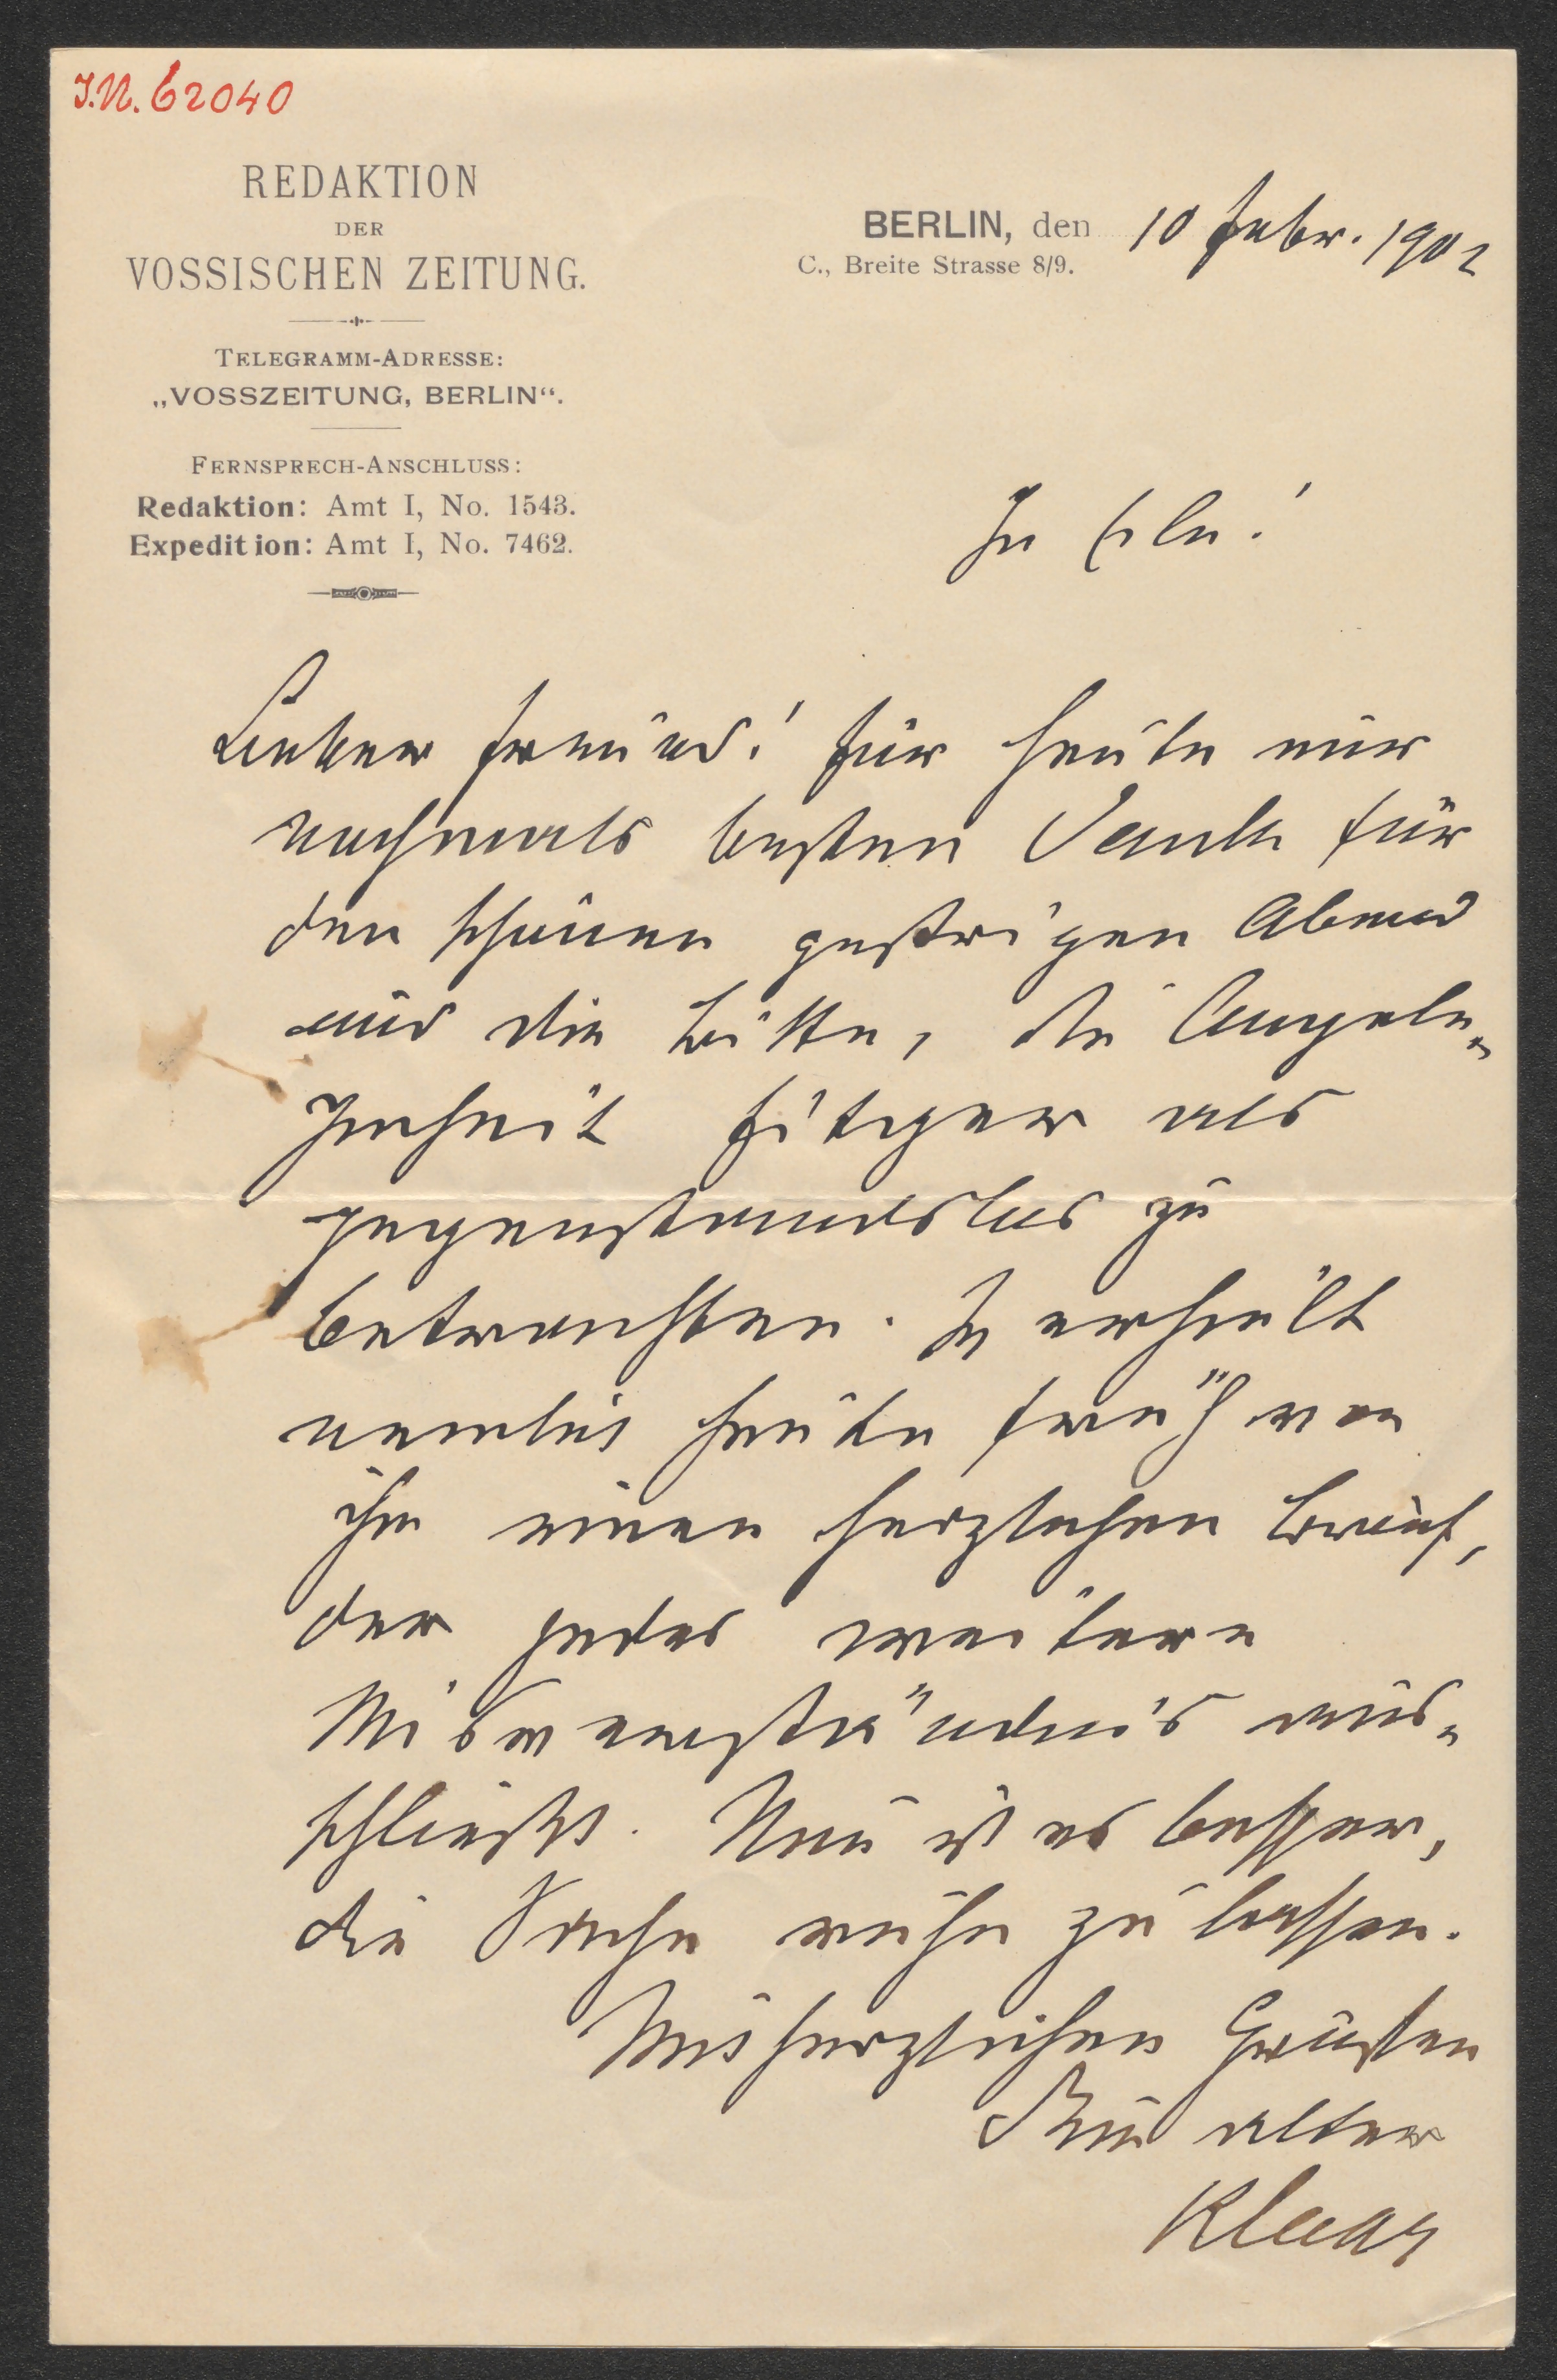 J.N. 62040
REDAKTION
DER
VOSSISCHEN ZEITUNG.
TELEGRAMM-ADRESSE:
„VOSSZEITUNG, BERLIN“.
FERNSPRECH-ANSCHLUSS:
Redaktion: Amt I, No. 1543.
Expedition: Amt I, No. 7462.
BERLIN, den 10 Febr. 1902
C., Breite Strasse 8/9.
In Eile!
Lieber Freund! Für heute nur
nochmals besten Dank für
den schönen gestrigen Abend
und die Bitte, die Angele-
genheit Fitger als
gegenstandslos zu
betrachten. Ich erhielt
nemlich heute früh von
ihm einen herzlichen Brief,
der jedes weitere
Misverständnis aus-
schliesst. Nun ist es besser,
die Sache ruhn zu lassen.
Mit herzlichen Grüssen
Dein alter
Klaar